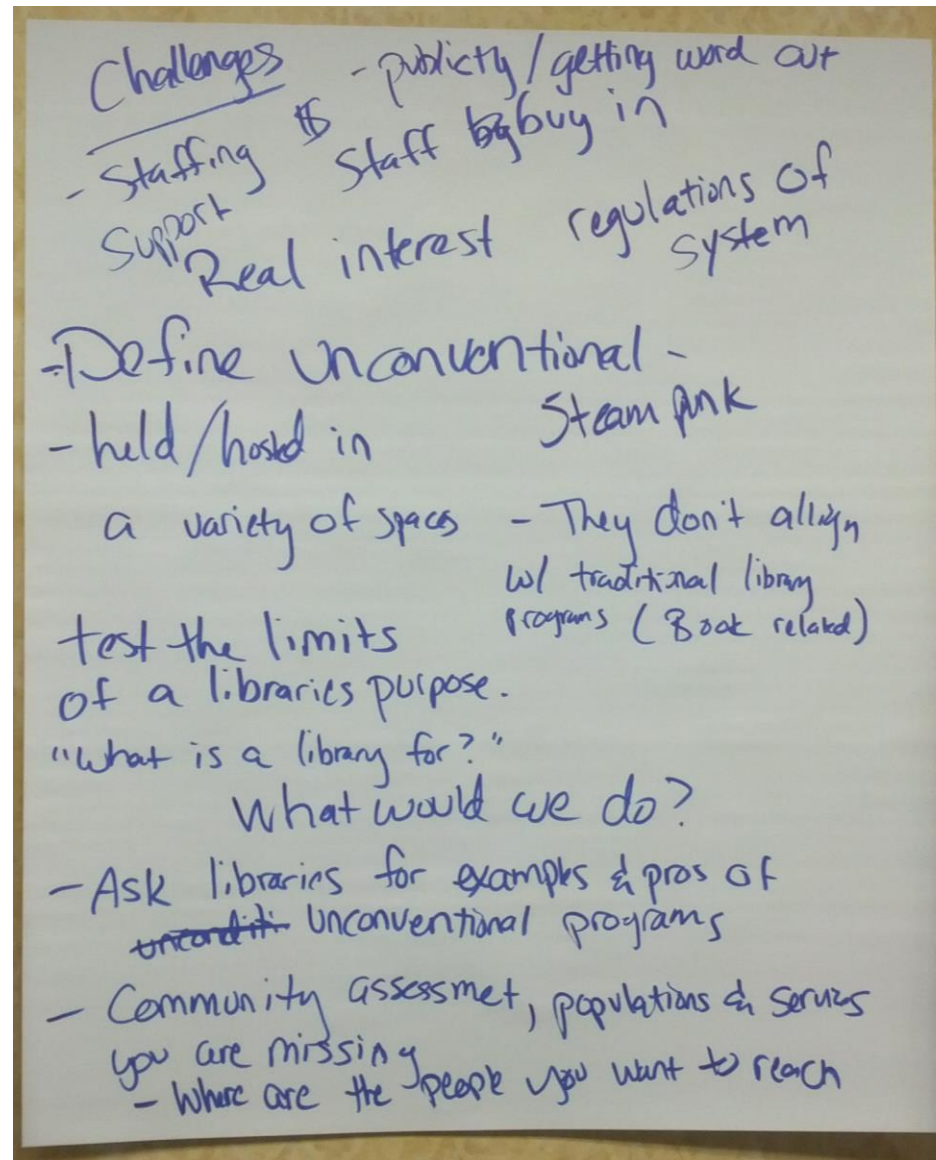 Challenges - publicty/getting word out
- Staffing $ Staff buy in
Support
Real interest regulations of
system
- Define unconventional -
Steam punk
- held/hosted in
a variety of spaces
- They don't allign
w/ traditional library
programs (Book related)
test the limits
of a libraries purpose.
"What is a library for?"
What would we do?
- Ask libraries for examples & pros of
unconditi unconventional programs
- Community assessmet, populations & servics
you are missing
- Where are the people you want to reach